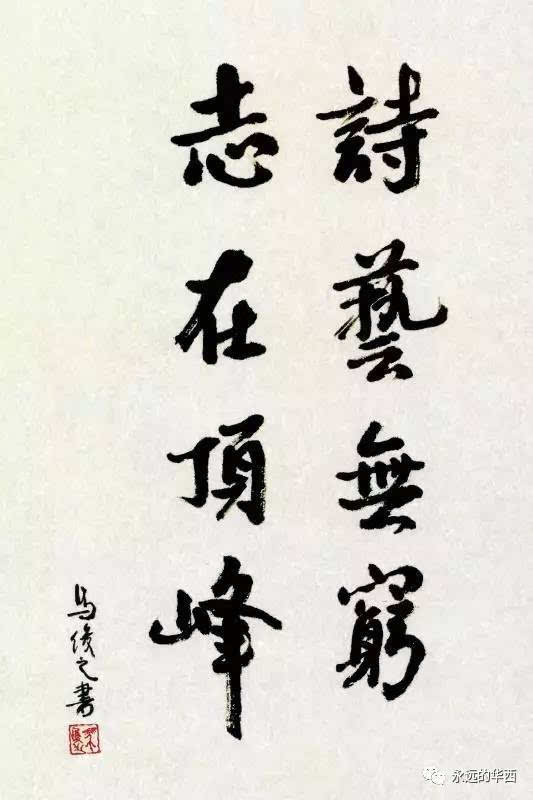 詩藝無窮
志在頂峰
馬俊之書
永远的华西